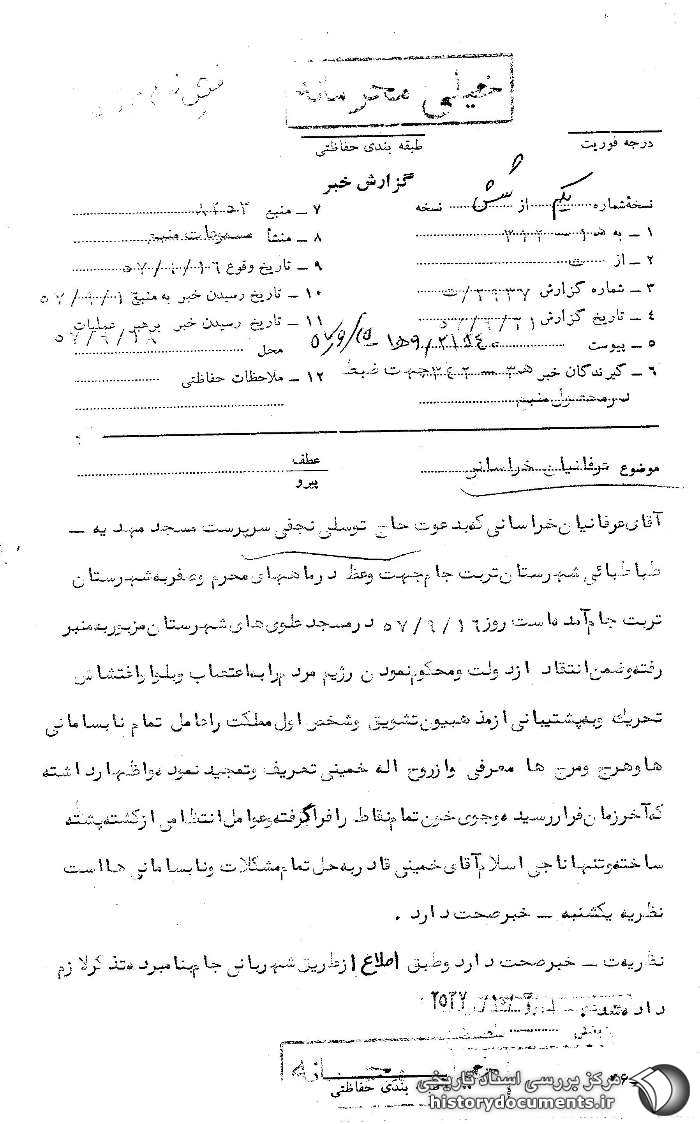 خیلی محرمانه
درجه فوریت
طبقه بندی حفاظتی
گزارش خبر
نسخه شماره یکم از شش نسخه
۱ ـ به ۳۱۲
۲ ـ از ت
۳ ـ شماره گزارش
۴ ـ تاریخ گزارش
۵ ـ پیوست
۶ ـ گیرندگان خبر جهت ضبط
در محتول منیم
۷ ـ منبع
۸ ـ منشأ
۹ ـ تاریخ وقوع ۵۷/۹/۱۶
۱۰ ـ تاریخ رسیدن خبر به منبع
۱۱ ـ تاریخ رسیدن خبر برهبر عملیات
۵۷/۹/۱۸
محل
۱۲ ـ ملاحظات حفاظتی
موضوع عرفانیان خراسانی
عطف
پیرو
آقای عرفانیان خراسانی که بدعوت حاج توسلی نجفی سرپرست مسجد مهدیه ـ
طباطبائی شهرستان تربت جام جهت وعظ در ماههای محرم وصفر به شهرستان
تربت جام آمده است روز ۵۷/۹/۱۶ در مسجد علوی های شهرستان مزبور به منبر
رفته و ضمن انتقاد از دولت و محکوم نمودن رژیم مردم را به اعتصاب و بلوا و اغتشاش
تحریک و به پشتیبانی از مذهبیون تشویق و شخص اول مملکت را عامل تمام نابسامانی
ها و هرج و مرج ها معرفی و از روح اله خمینی تعریف و تمجید نموده و اظهار داشته
که آخر زمان فرا رسیده و جوی خون تمام نقاط را فرا گرفته و عوامل انتظامی از کشته پشته
ساخته و تنها ناجی اسلام آقای خمینی قادر به حل تمام مشکلات و نابسامانی ها است
نظریه یکشنبه ـ خبر صحت دارد .
نظریه ت ـ خبر صحت دارد و طبق اطلاع از طریق شهربانی جام بنامبرده تذکر لازم
داده شده
طبقه بندی حفاظتی
مرکز بررسی اسناد تاریخی
historydocuments.ir